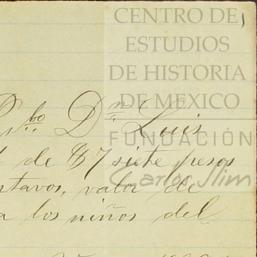 CENTRO DE
ESTUDIOS
DE HISTORIA
DE MEXICO
FUNDACIÓN
Carlos Slim
Pbo. Dn. Luis
de $7 siete pesos
ntavos, valor de
a los niños del